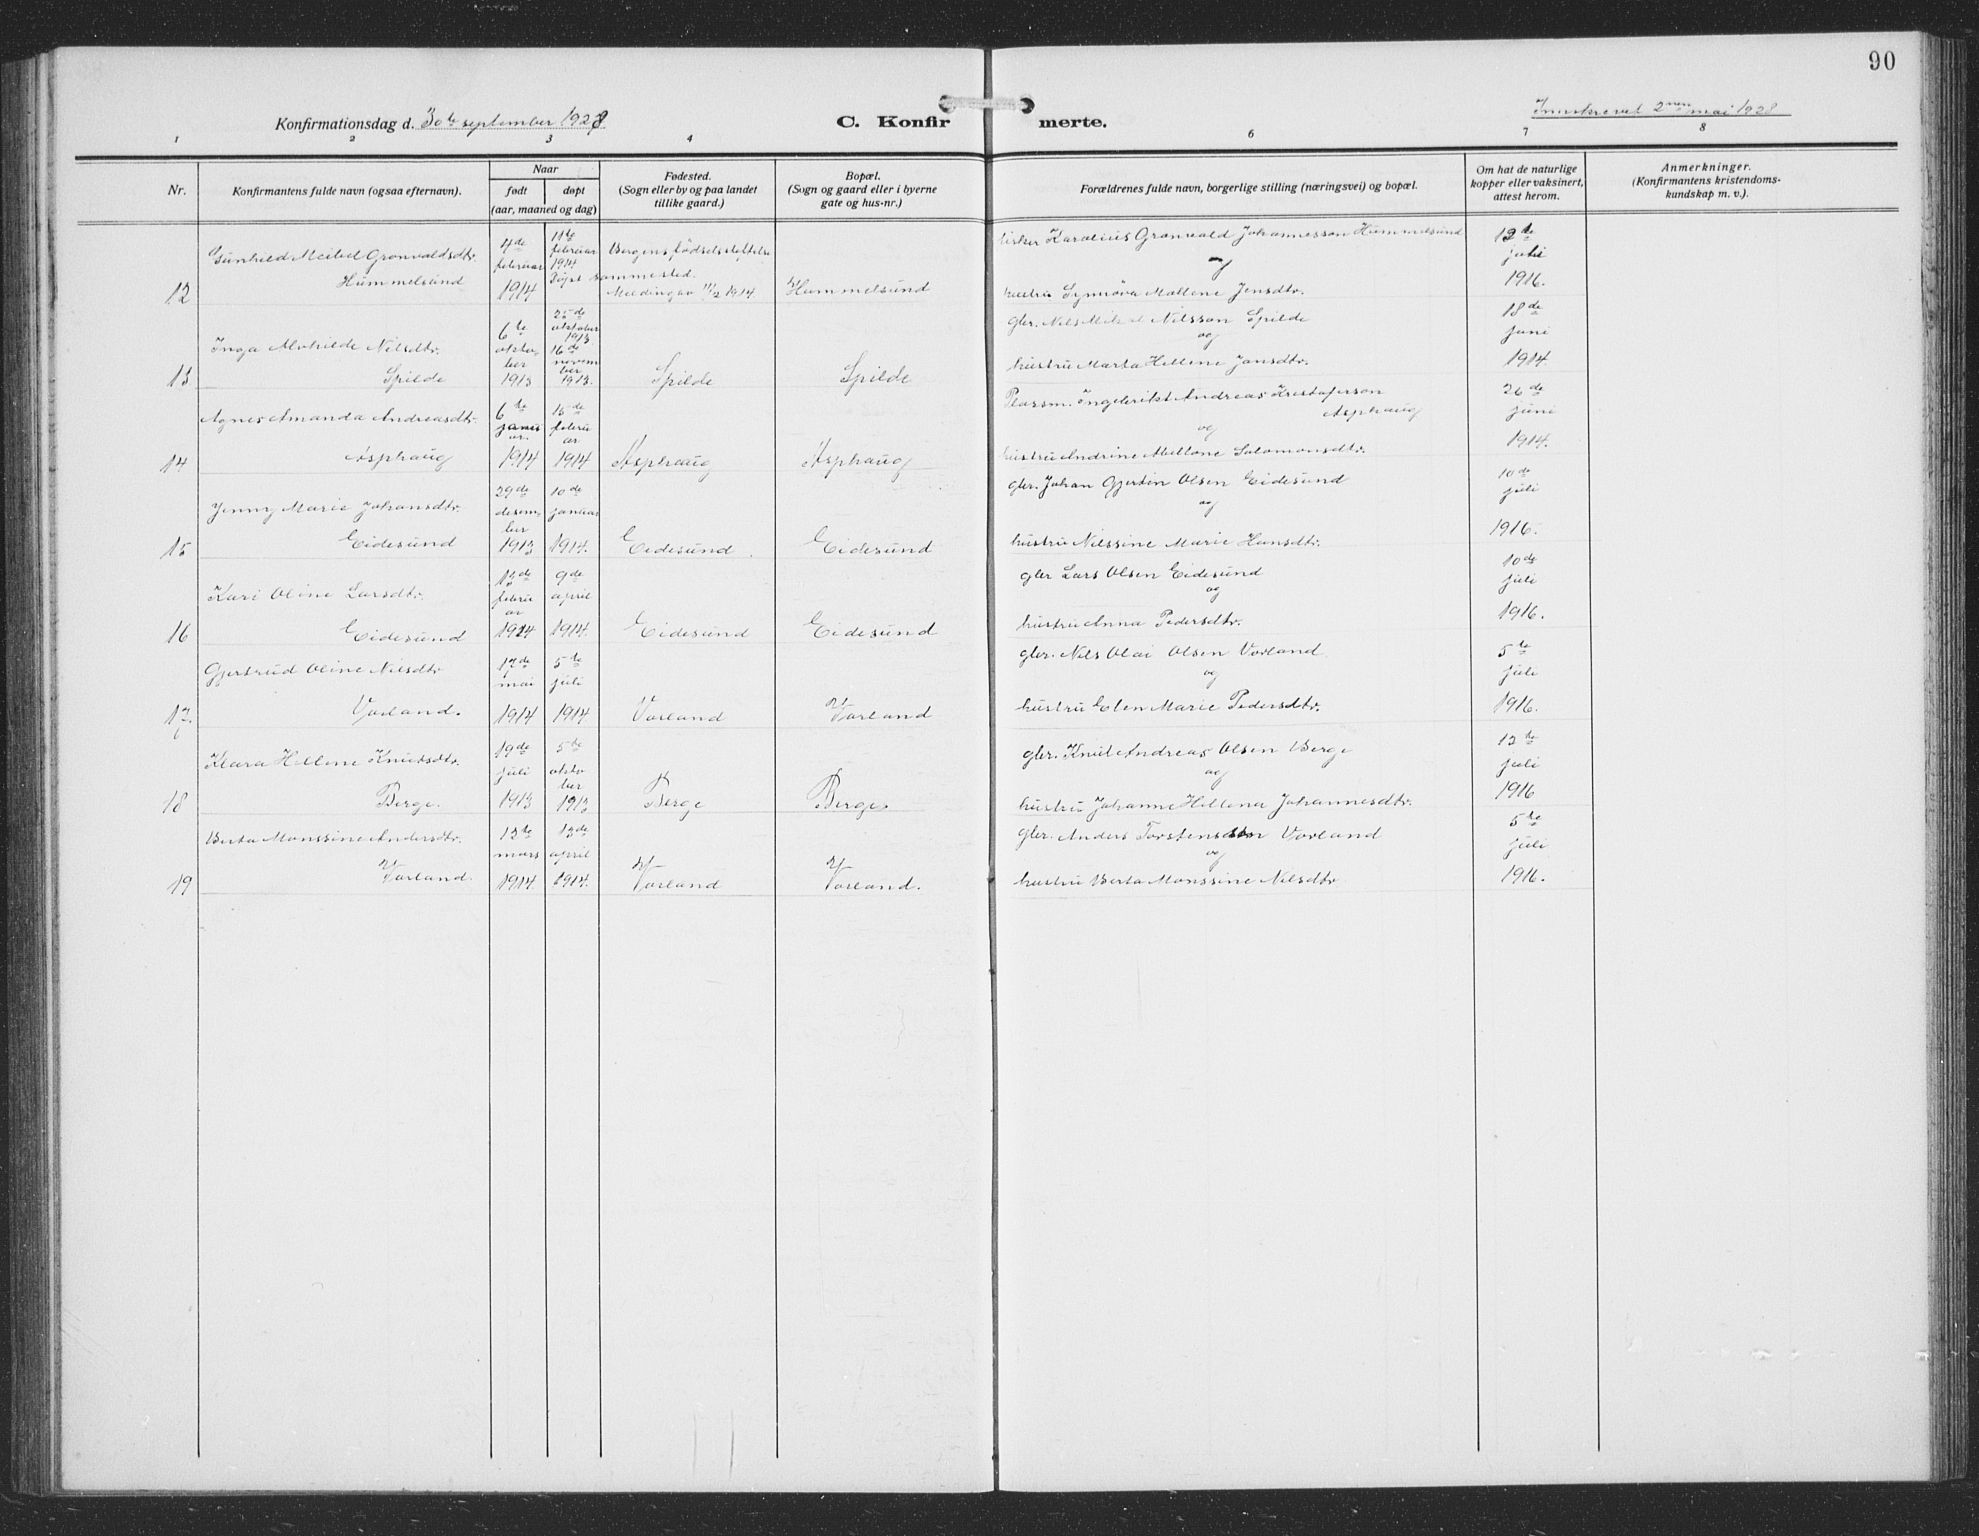 90
Konfirmationsdag d. 30te september 1928
C. Konfirmerte.
Innskrevet 2nen mai 1928
1 2 3 4 6 7 8
Nr.
Konfirmantens fulde navn (ogsaa efternavn).
Naar
født
døpt
(aar, maaned og dag)
Fødested.
(Sogn eller by og paa landet
tillike gaard.)
Bopæl.
(Sogn og gaard eller i byerne
gate og hus-nr.)
Forældrenes fulde navn, borgerlige stilling (næringsvei) og bopæl.
Om hat de naturlige
kopper eller vaksinert,
attest herom.
Anmerkninger.
(Konfirmantens kristendoms-
kundskap m. v.).
12
Gunhild Meibel Grønvaldsdtr.
Hummelsund
4de
februar
1914
11te
februar
1914
Døpt sammested.
Bergens fødselsstiftelse
Melding av 11/2 1914.
Hummelsund
fisker Karolius Grønvald Johannesson Hummelsund
og
hustru Synnøva Maltene Jensdtr.
12te
juli
1916.
13
Inga Alvhilde Nilsdtr.
Spilde
6te
oktober
1913
25de
oktober
1913
16de
november
1913.
Spilde
Spilde
gbr. Nils Nilsson Spilde
og
hustru Marta Hellene Jansdtr.
18de
juni
1914.
14
Agnes Amanda Andreasdtr.
Asphaug
6te
januar.
1914
15de
februar
1914
Asphaug
Asphaug
Plassm. Ingebrikt Andreas Kristoferson
Asphaug
og
hustru Andrine Mallene Salomonsdtr.
26de
juni
1914.
15
Jenny Marie Johansdtr.
Eidesund
29de
desember
1913
10de
januar
1914.
Eidesund.
Eidesund
gbr. Johan Gjertin Olsen Eidesund
og
hustru Nilssine Marie Hansdtr.
10de
juli
1916.
16
Kari Oline Larsdtr.
Eidesund
februar
1914
9de
april
1914.
Eidesund
Eidesund
gbr Lars Olsen Eidesund
og
hustru Anna Pedersdtr.
10de
juli
1916.
17.
Gjertrud Oline Nilsdtr
Vorland.
17de
mai
1914
5te
juli
1914
Vorland
Vorland
gbr. Nils Olai Olsen Vorland.
og
hustru Elen Marie Pedersdtr.
5te
juli
1916.
18
Klara Hellene Knutsdtr.
Berge.
19de
juli
1913
5te
oktober
1913
Berge
Berge
gbr. Knut Andreas Olsen Berge
og
hustru Johanne Hellena Johannesdtr.
12te
juli
1916
19
Berta Monssine Andersdtr.
Vorland.
12te
mars
1914.
13de
april
1914.
Vorland
Vorland.
gbr. Anders Torstensson Vorland
og
hustru Berta Monssine Nilsdtr
5te
juli
1916.